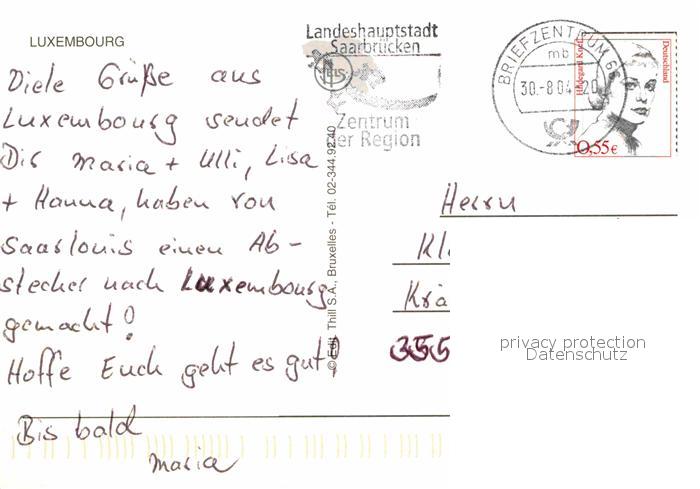 LUXEMBOURG
Viele Grüße aus
Luxembourg sendet
Dir Maria + Ulli, Lisa
+ Hanna, haben von
Saarlouis einen Ab-
stecher nach Luxembourg
gemacht!
Hoffe Euch geht es gut!
Bis bald
Maria
© Edit. Thill S.A., Bruxelles - Tél. 02-344.92.40
Landeshauptstadt
Saarbrücken
Zentrum
der Region
BRIEFZENTRUM 66
mb
30.-8.04-20
Hildegard Knef
Deutschland
0,55€
Herrn
Kl
Krä
355
privacy protection
Datenschutz